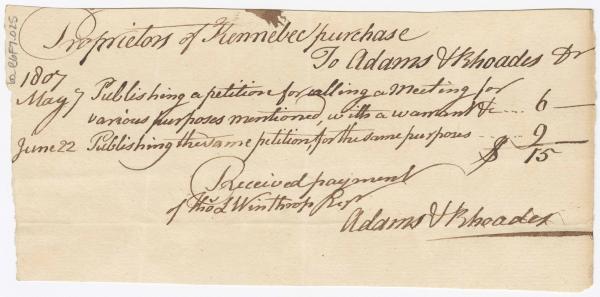 Proprietors of Kennebec purchase
To Adams & Rhoades Dr
1807
May 7 Publishing a petition for calling a Meeting for
various purposes mentioned, with a warrant &c .... 6 —
June 22 Publishing the same petition for the same purposes .... 9 —
$ 15
Received payment
of Thos L Winthrop Esqr
Adams & Rhoades